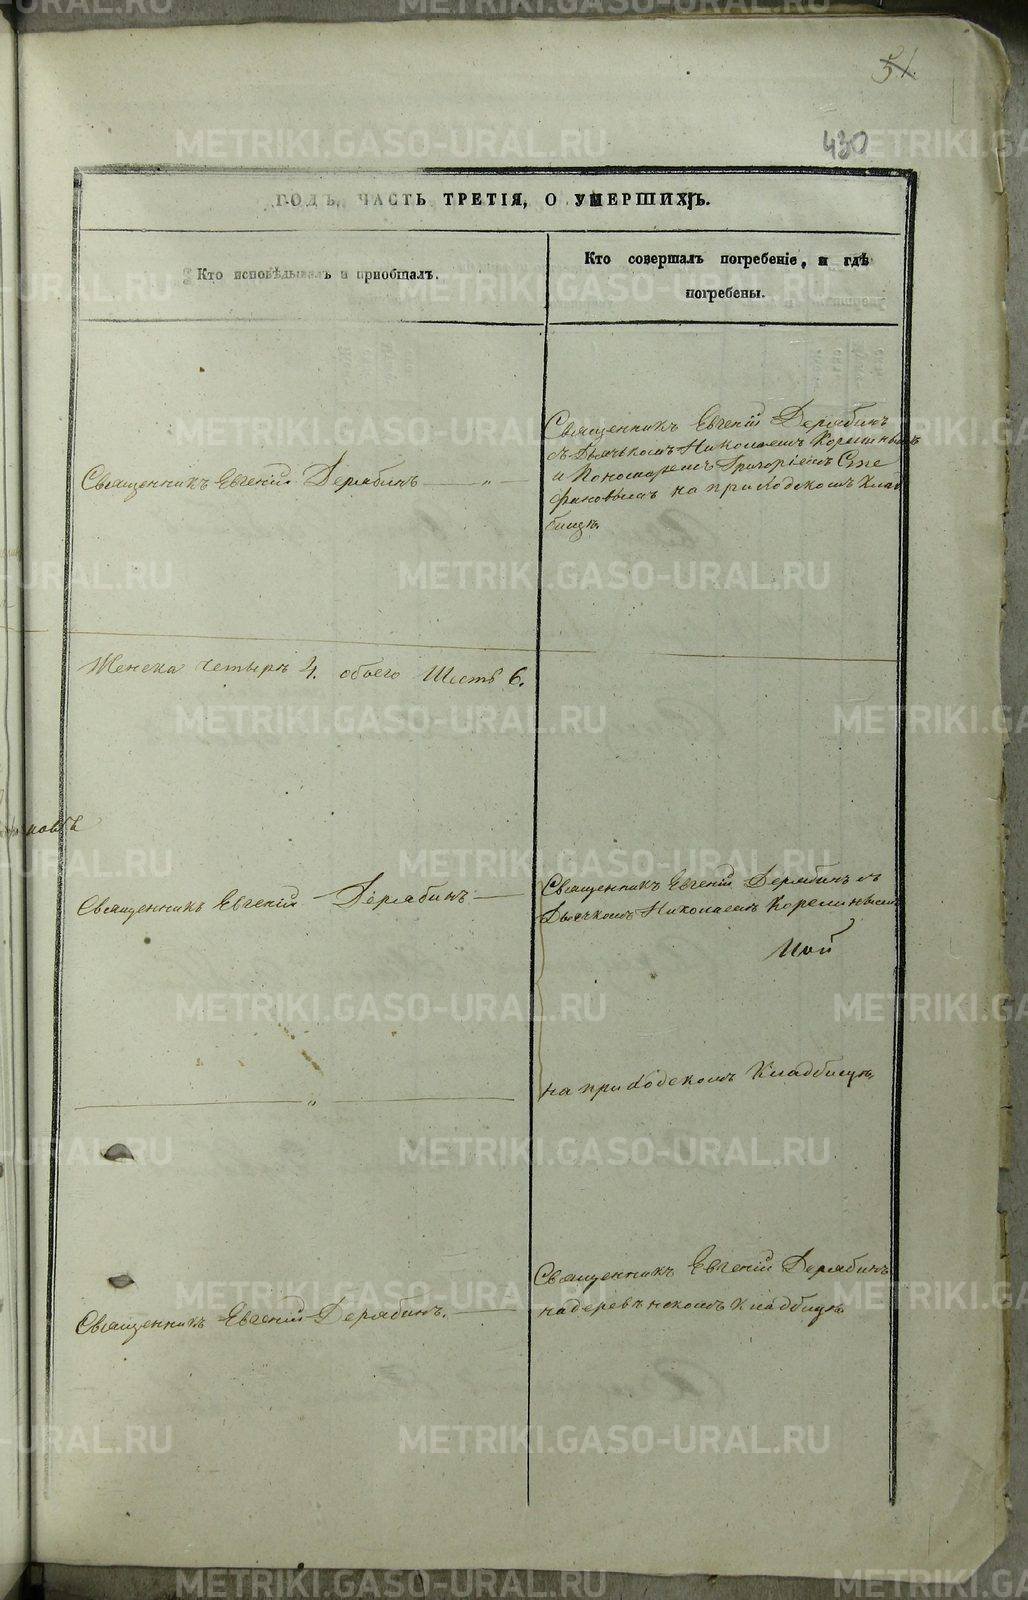 51.
430
ГОДЪ, ЧАСТЬ ТРЕТІЯ, О УМЕРШИХЪ.
Кто исповѣдывалъ и пріобщалъ.
Кто совершалъ погребеніе, и гдѣ
погребены.
Священникъ Евгеній Дерябинъ
съ Дьячкомъ Николаемъ Корелинымъ
и Пономаремъ Григоріемъ Сте
фановымъ на приходскомъ клад
бищѣ
Священникъ Евгеній Дерябинъ — „
Женска четыре 4. обоего Шесть 6.
Священникъ Евгеній Дерябинъ —
Священникъ Евгеній Дерябинъ съ
Дьячкомъ Николаемъ Корелинымъ
на приходскомъ Кладбищѣ
„
Священникъ Евгеній Дерябинъ
на деревенскомъ кладбищѣ
Священникъ Евгеній Дерябинъ. —
METRIKI.GASO-URAL.RU